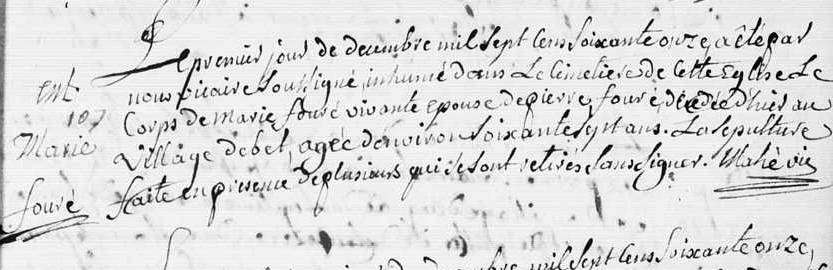 Le premier jour de decembre mil sept cens soixante onze, a été par
nous vicaire soussigné, inhumé dans Le Cimetiere de Cette Eglise Le
ent
107
Corps de marie fouré vivante epouse de pierre fouré, décédée d'hier au
Marie
village de bel, agée d'environ soixante sept ans. La sepulture
fouré
faite en presence de plusieurs qui se sont retirés sans signer. Mahé vic
decembre mil sept cens soixante onze,